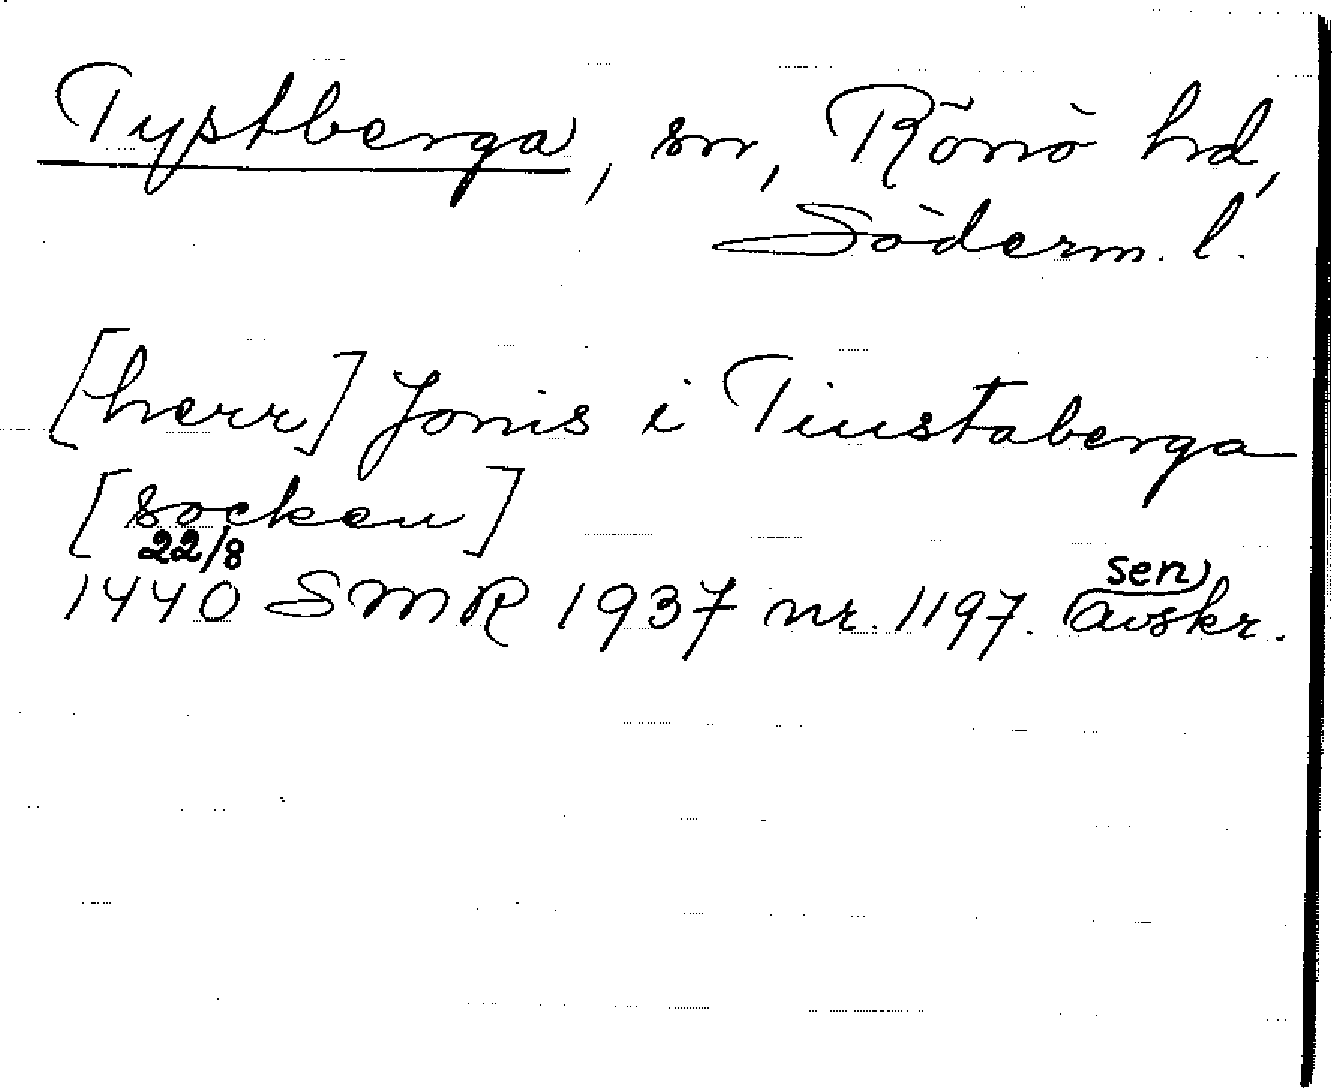 Tystberga, sn, Rönö hd,
Söderm. l.
[herr] Jönis i Tiustaberga
[socken]
22/8
1440 SMR 1937 nr. 1197. sen avskr.